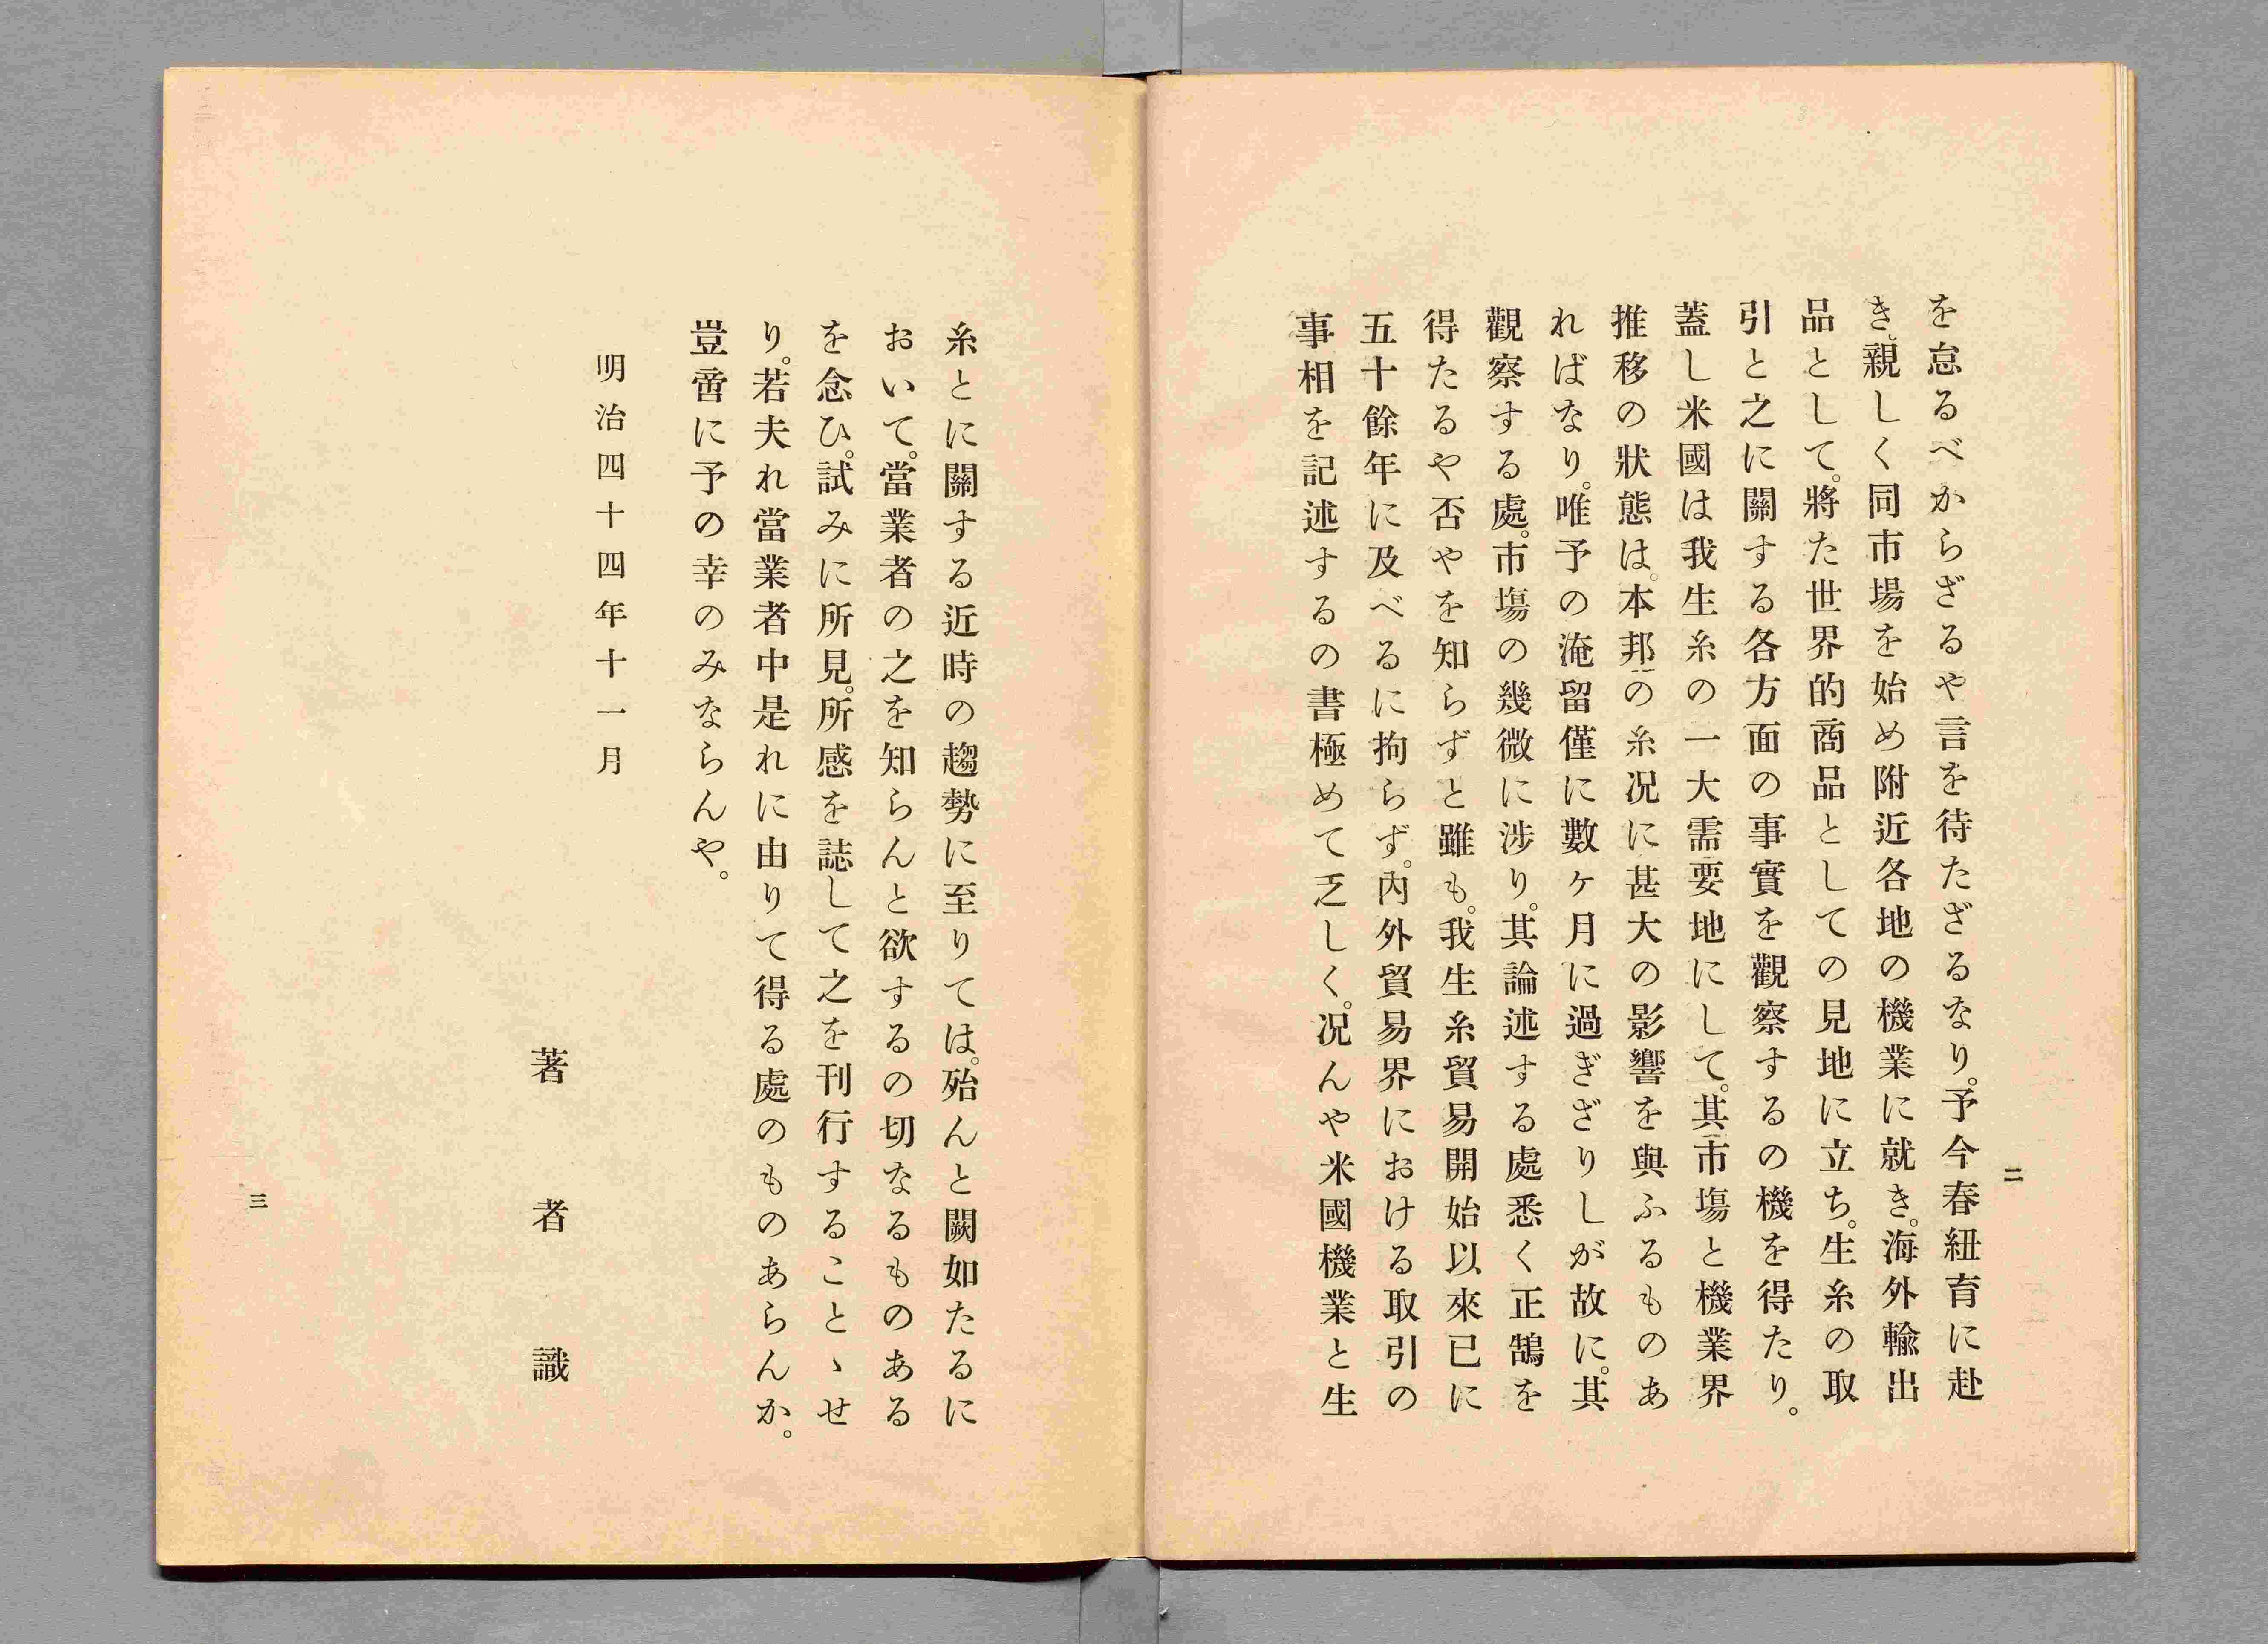 を怠るべからざるや言を待たざるなり。予今春紐育に赴
き。親しく同市場を始め附近各地の機業に就き。海外輸出
品として。將た世界的商品としての見地に立ち。生糸の取
引と之に關する各方面の事實を觀察するの機を得たり。
蓋し米國は我生糸の一大需要地にして。其市塲と機業界
推移の狀態は。本邦の糸况に甚大の影響を與ふるものあ
ればなり。唯予の淹留僅に數ヶ月に過ぎざりしが故に。其
觀察する處。市塲の幾微に涉り。其論述する處悉く正鵠を
得たるや否やを知らずと雖も。我生糸貿易開始以來已に
五十餘年に及べるに拘らず。內外貿易界における取引の
事相を記述するの書極めて乏しく。况んや米國機業と生
二
糸とに關する近時の趨勢に至りては。殆んと闕如たるに
おいて。當業者の之を知らんと欲するの切なるものある
を念ひ。試みに所見。所感を誌して之を刊行することゝせ
り。若夫れ當業者中是れに由りて得る處のものあらんか。
豈啻に予の幸のみならんや。
明治四十四年十一月
著者識
三